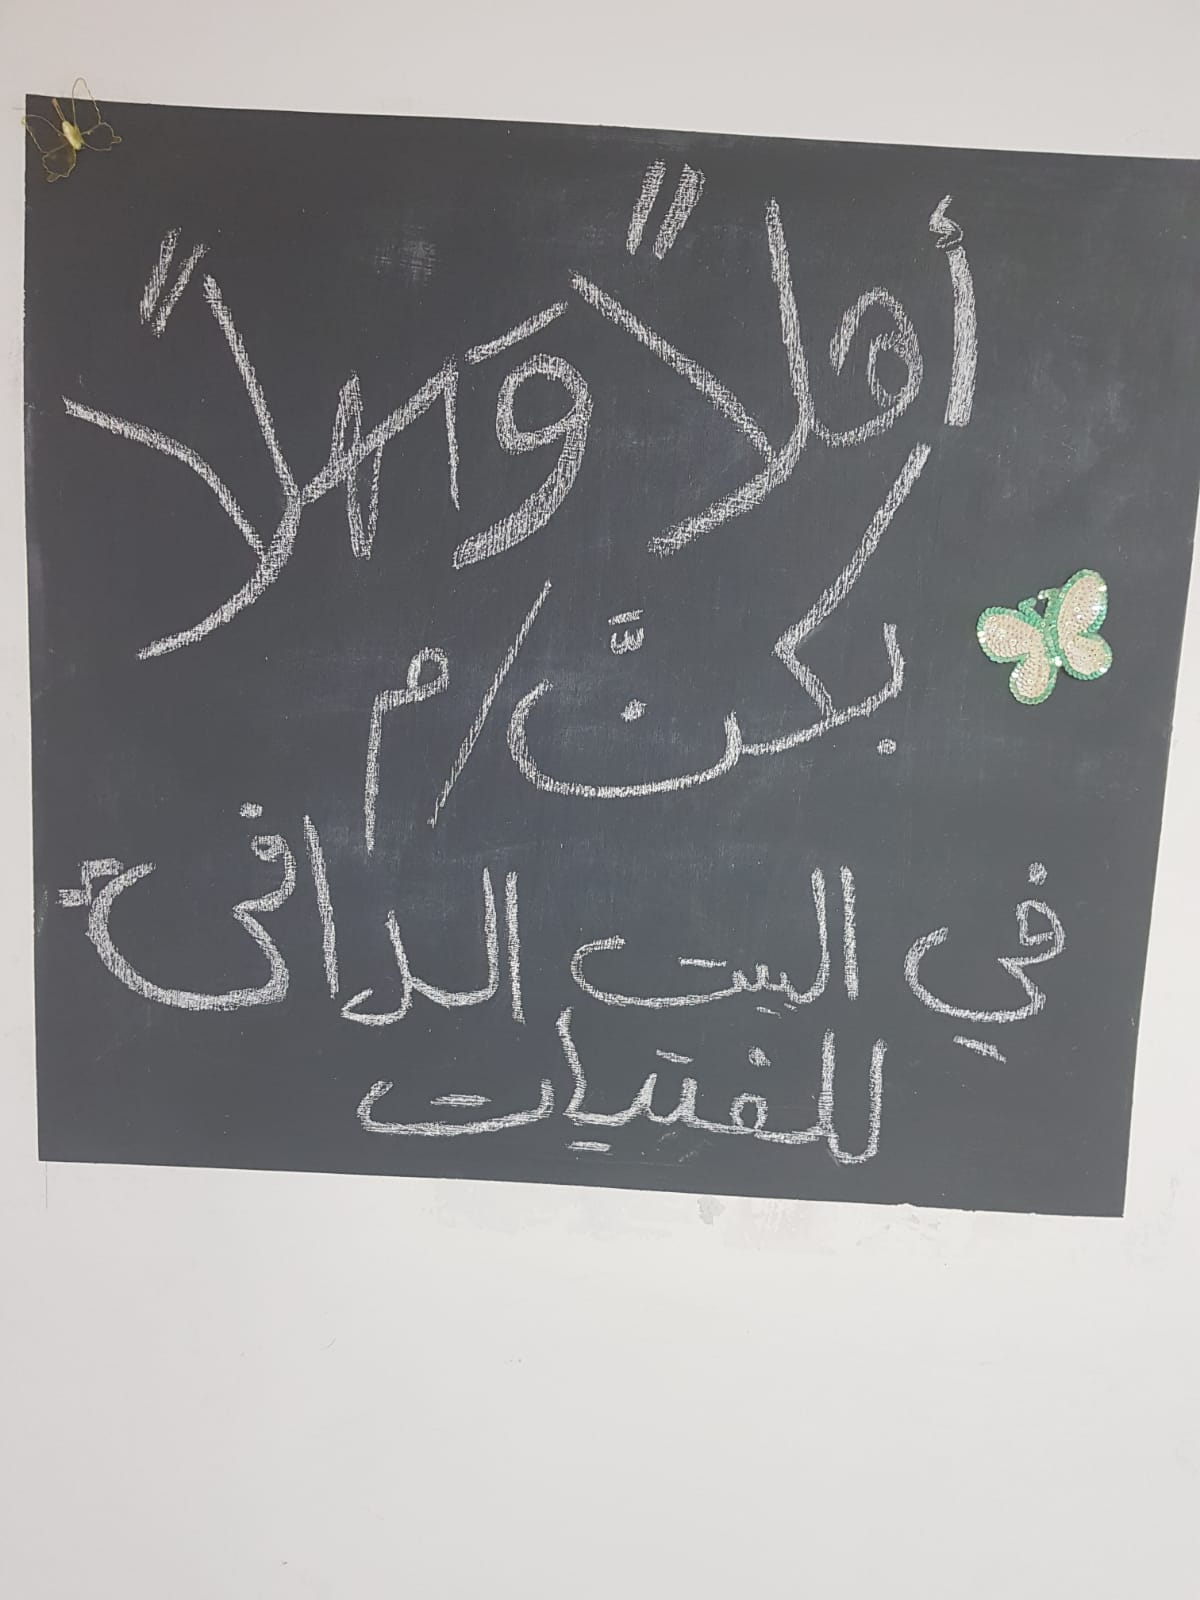 أهلاً وسهلاً
بكنّ/م
في البيت الدافئ
للفتيات